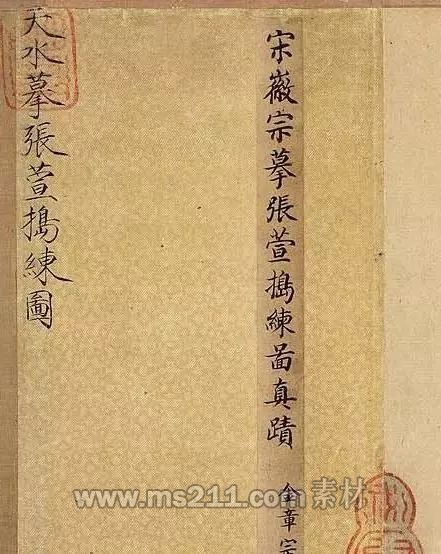 宋徽宗摹張萱搗練啚真蹟
金章宗
天水摹張萱搗練圖
www.ms211.com素材